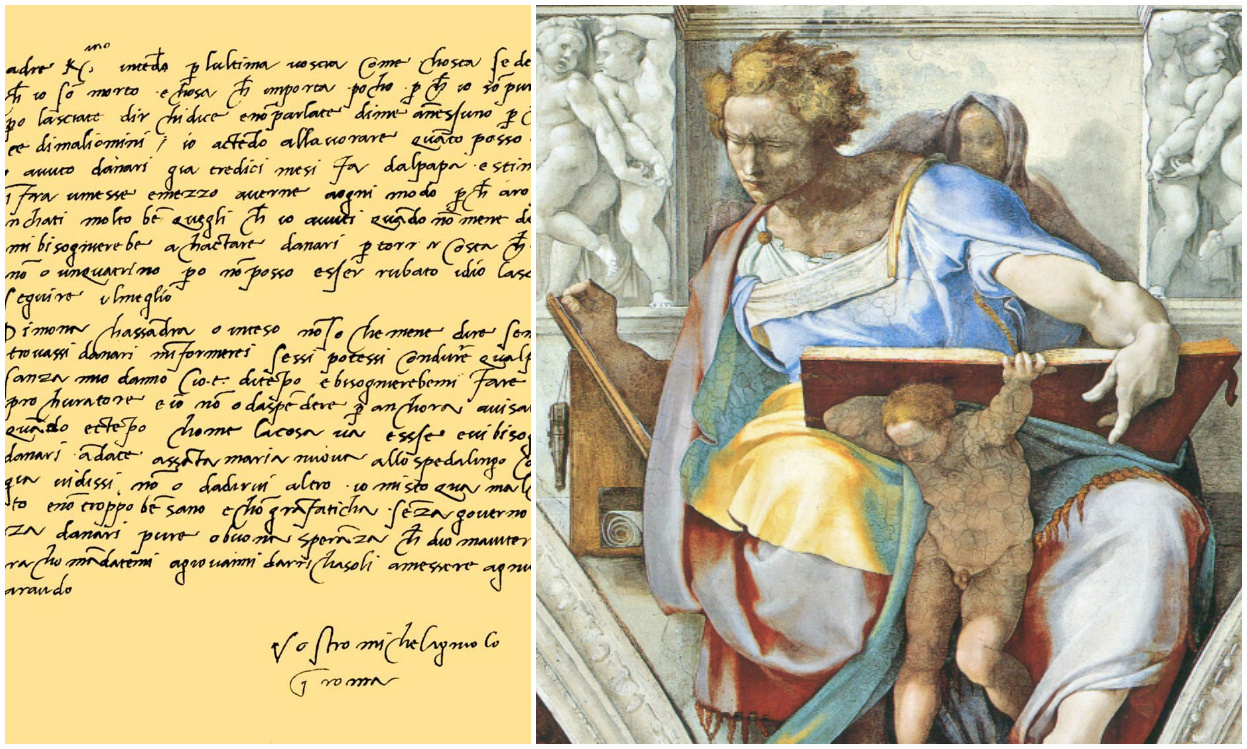 adre R(mo intēdo p lultima vosτra Come chosτa se de
ch io so morto e chosa ch importa pocho p ch io so pur
po lasciate dir chi dice e nō parlate di me a nessuno p c
ee di mali omini io actēdo allavorare quāto posso
avuto danari gia tredici mesi fa dal papa e stim
i fra un mese e mezzo averne a ogni modo p ch aro
nchati molto bē quegli ch io avuti quādo nō me ne d
mi bisognierebe achactare danari p torn Costa ch
nō o un quatrino po nō posso esser rubato idio lasc
seguire ilmeglio
Di mona chassādra o inteso nō so che me ne dire sen
trovassi danari m informerei sessi potessi Condure qua
sanza mio danno Cioe di tēpo e bisognierebemi fare
prochuratore e io nō o da spēdere p anchora avisa
quādo e e tēpo chome la cosa va e sse e vi biso
danari ādate assāta maria nuova allo spedalingo Co
gia vi dissi nō o da dirvi altro io mi sto qua mal
to e nō troppo bē sano e chō grā faticha sēza governo
za danari pure o buona sperāza ch dio m aiuter
rachomādatemi a giovanni da richasoli a messere agn
araudo
Vostro michelagniolo
i roma